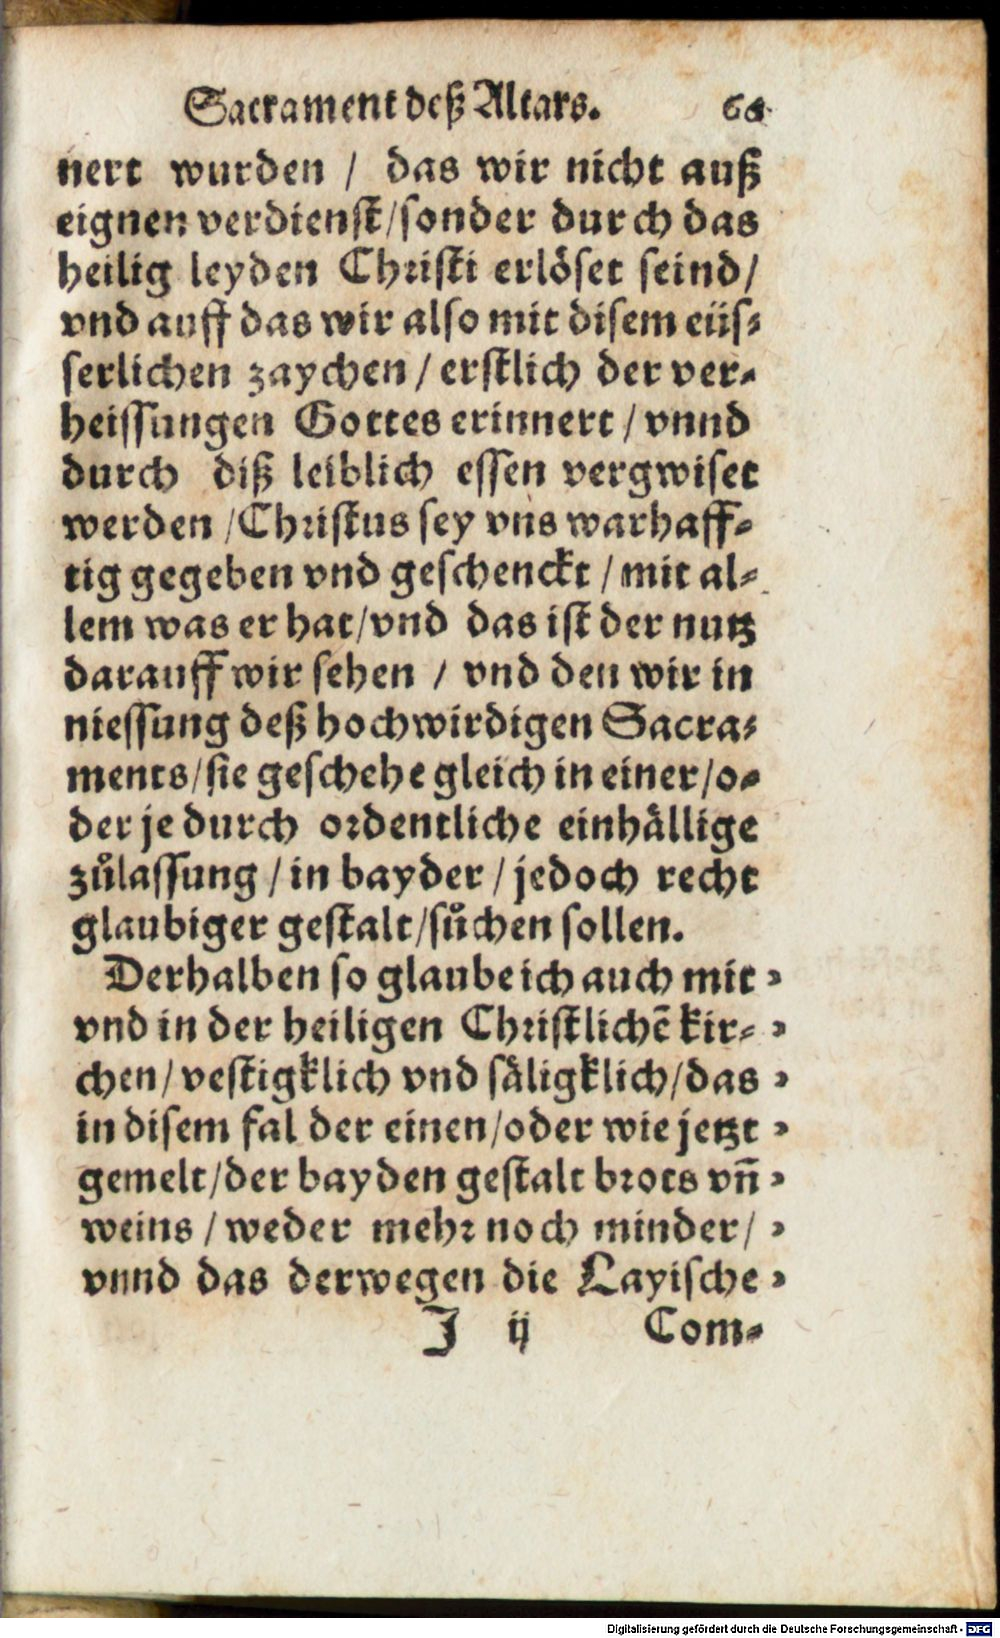 Sacrament deß Altars. 68
nert wurden / das wir nicht auß
eignen verdienst/sonder durch das
heilig leyden Christi erlöset seind/
vnd auff das wir also mit disem eüs-
serlichen zaychen / erstlich der ver-
heissungen Gottes erinnert / vnnd
durch diß leiblich essen vergwiset
werden /Christus sey vns warhaff-
tig gegeben vnd geschenckt / mit al-
lem was er hat/vnd das ist der nutz
darauff wir sehen / vnd den wir in
niessung deß hochwirdigen Sacra-
ments/sie geschehe gleich in einer/o-
der je durch ordentliche einhällige
zůlassung / in bayder / jedoch recht
glaubiger gestalt/sůchen sollen.
Derhalben so glaube ich auch mit „
vnd in der heiligen Christlichē kir- „
chen/ vestigklich vnd säligklich/das „
in disem fal der einen/oder wie jetzt „
gemelt/der bayden gestalt brots vñ „
weins / weder mehr noch minder/ „
vnnd das derwegen die Layische „
J ij Com-
Digitalisierung gefördert durch die Deutsche Forschungsgemeinschaft - DFG